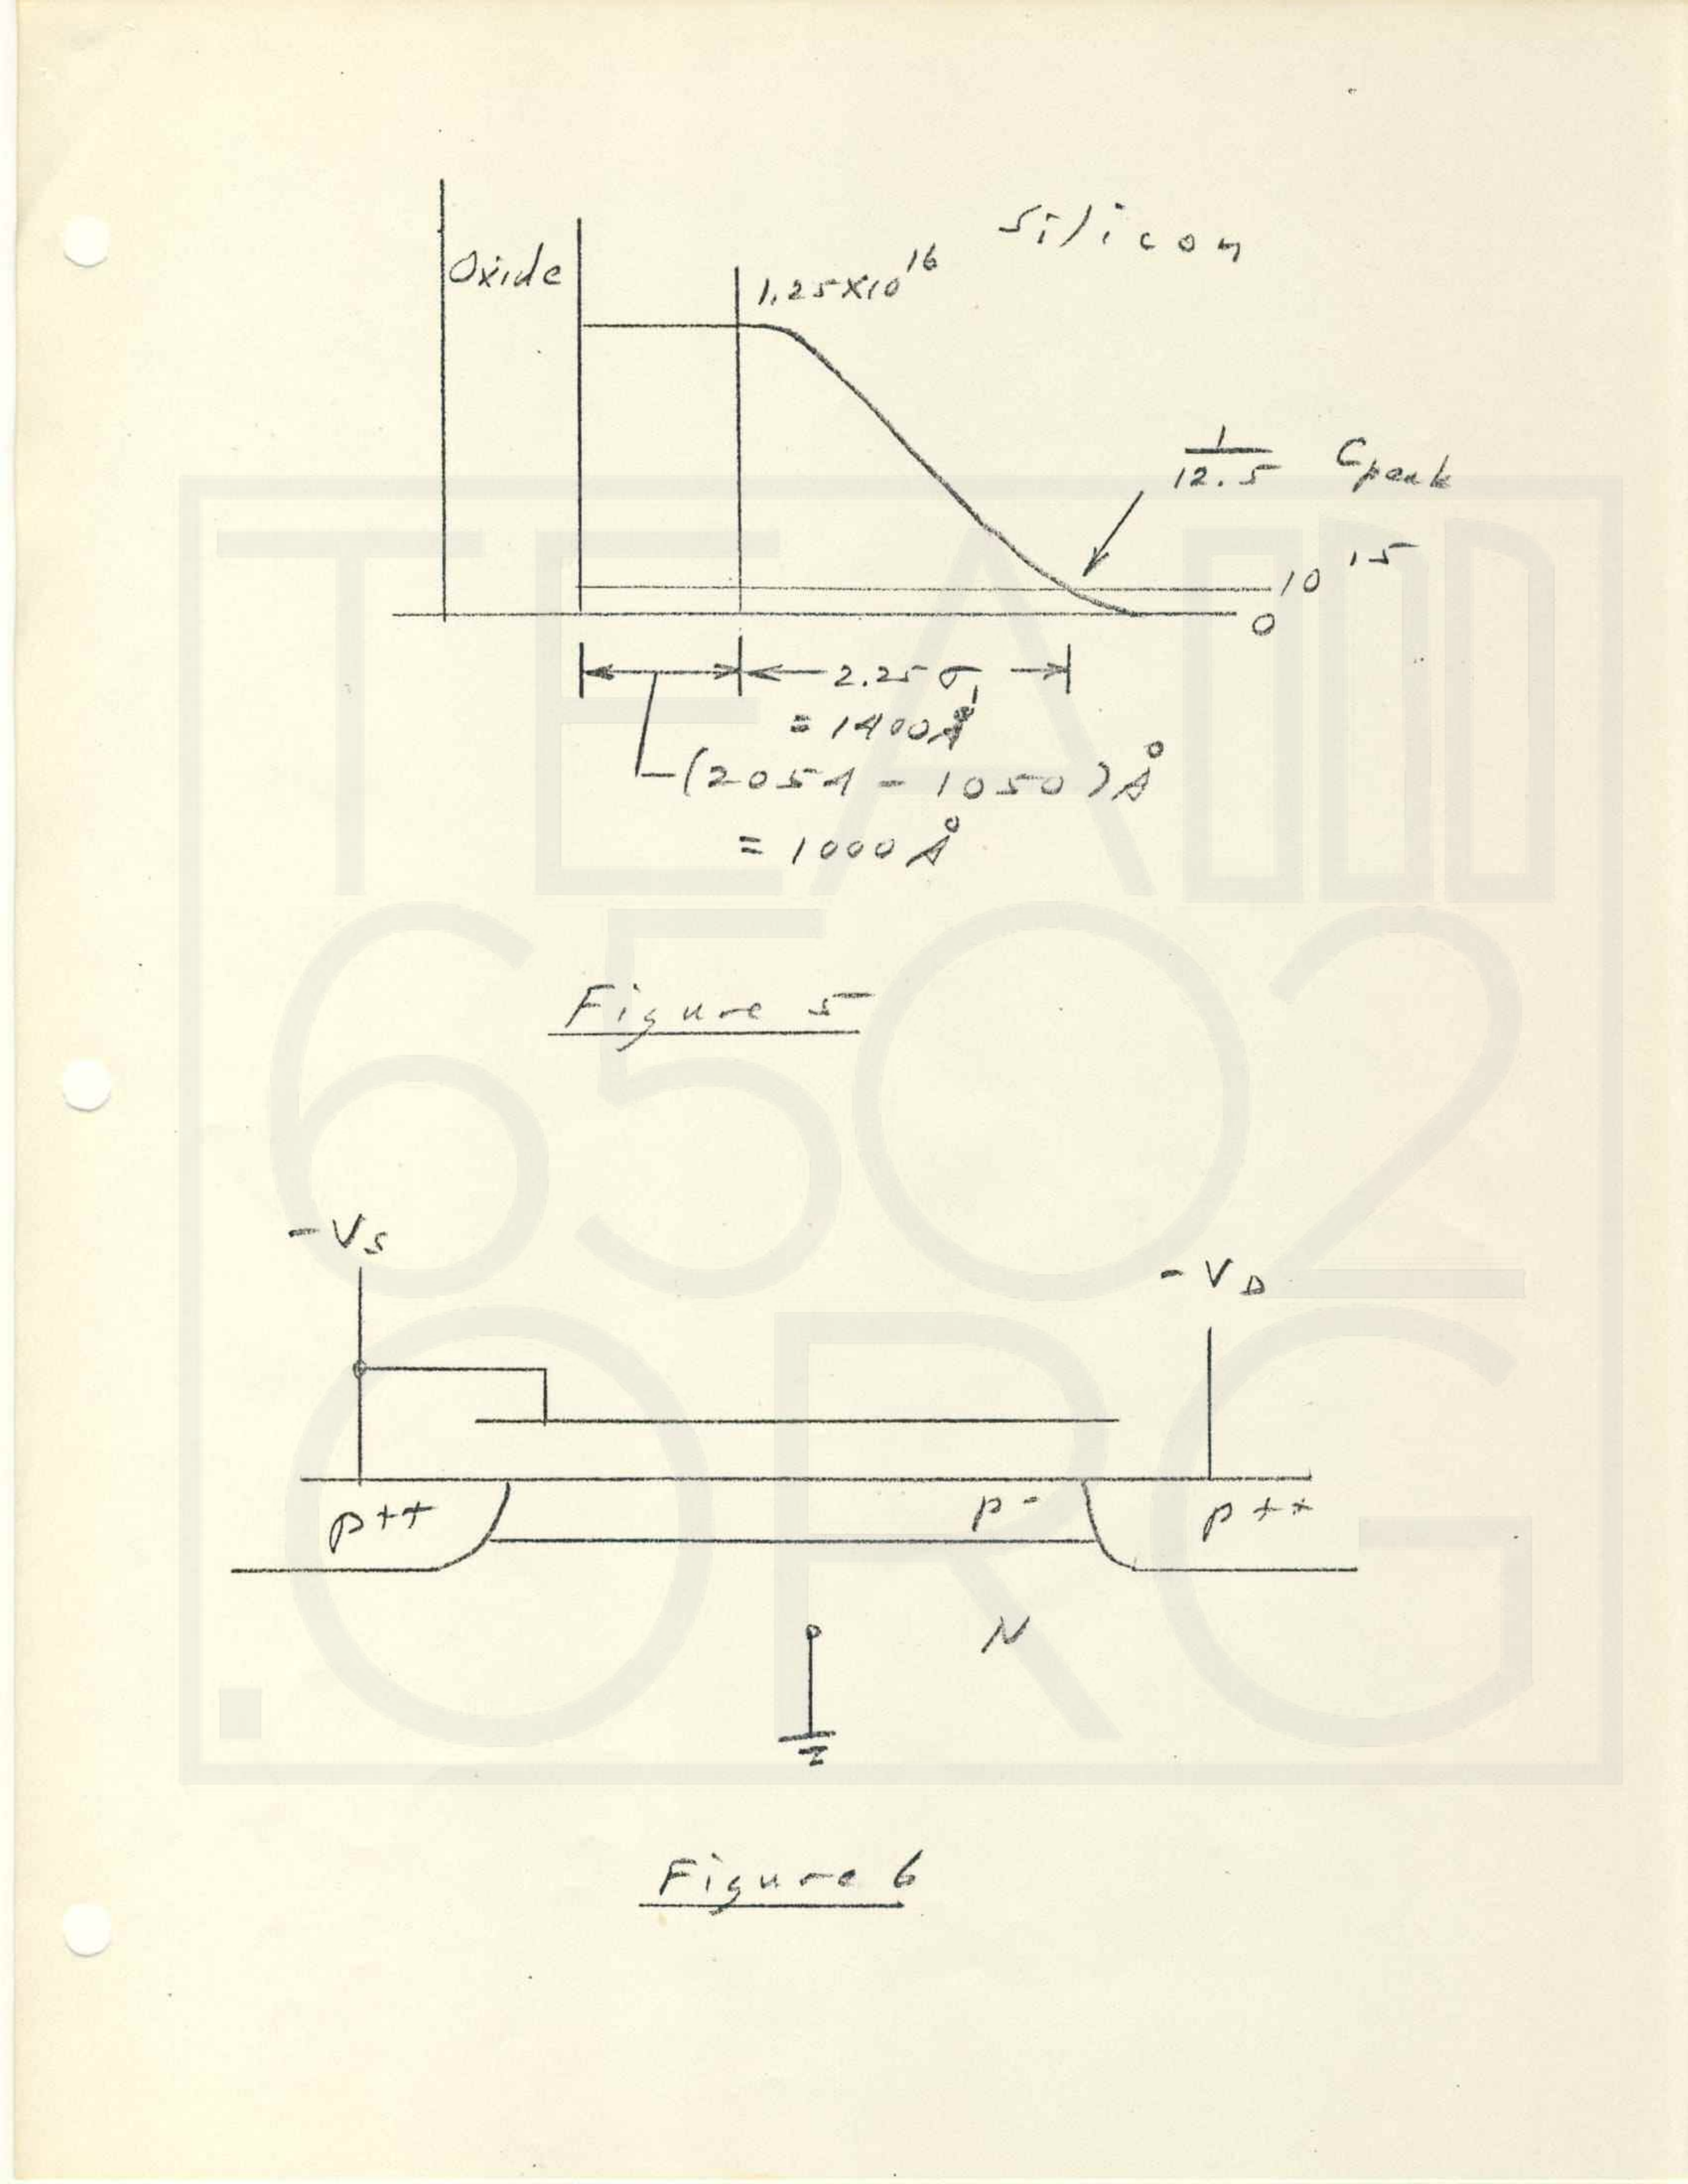 Silicon
Oxide
1.25×10^16
1/12.5 Cpeak
10^15
0
2.25 σ1
= 1400Å
(2054 - 1050)Å
= 1000Å
Figure 5
-VS
-VD
p++
p-
p++
N
Figure 6
TEAM
6502
.ORG